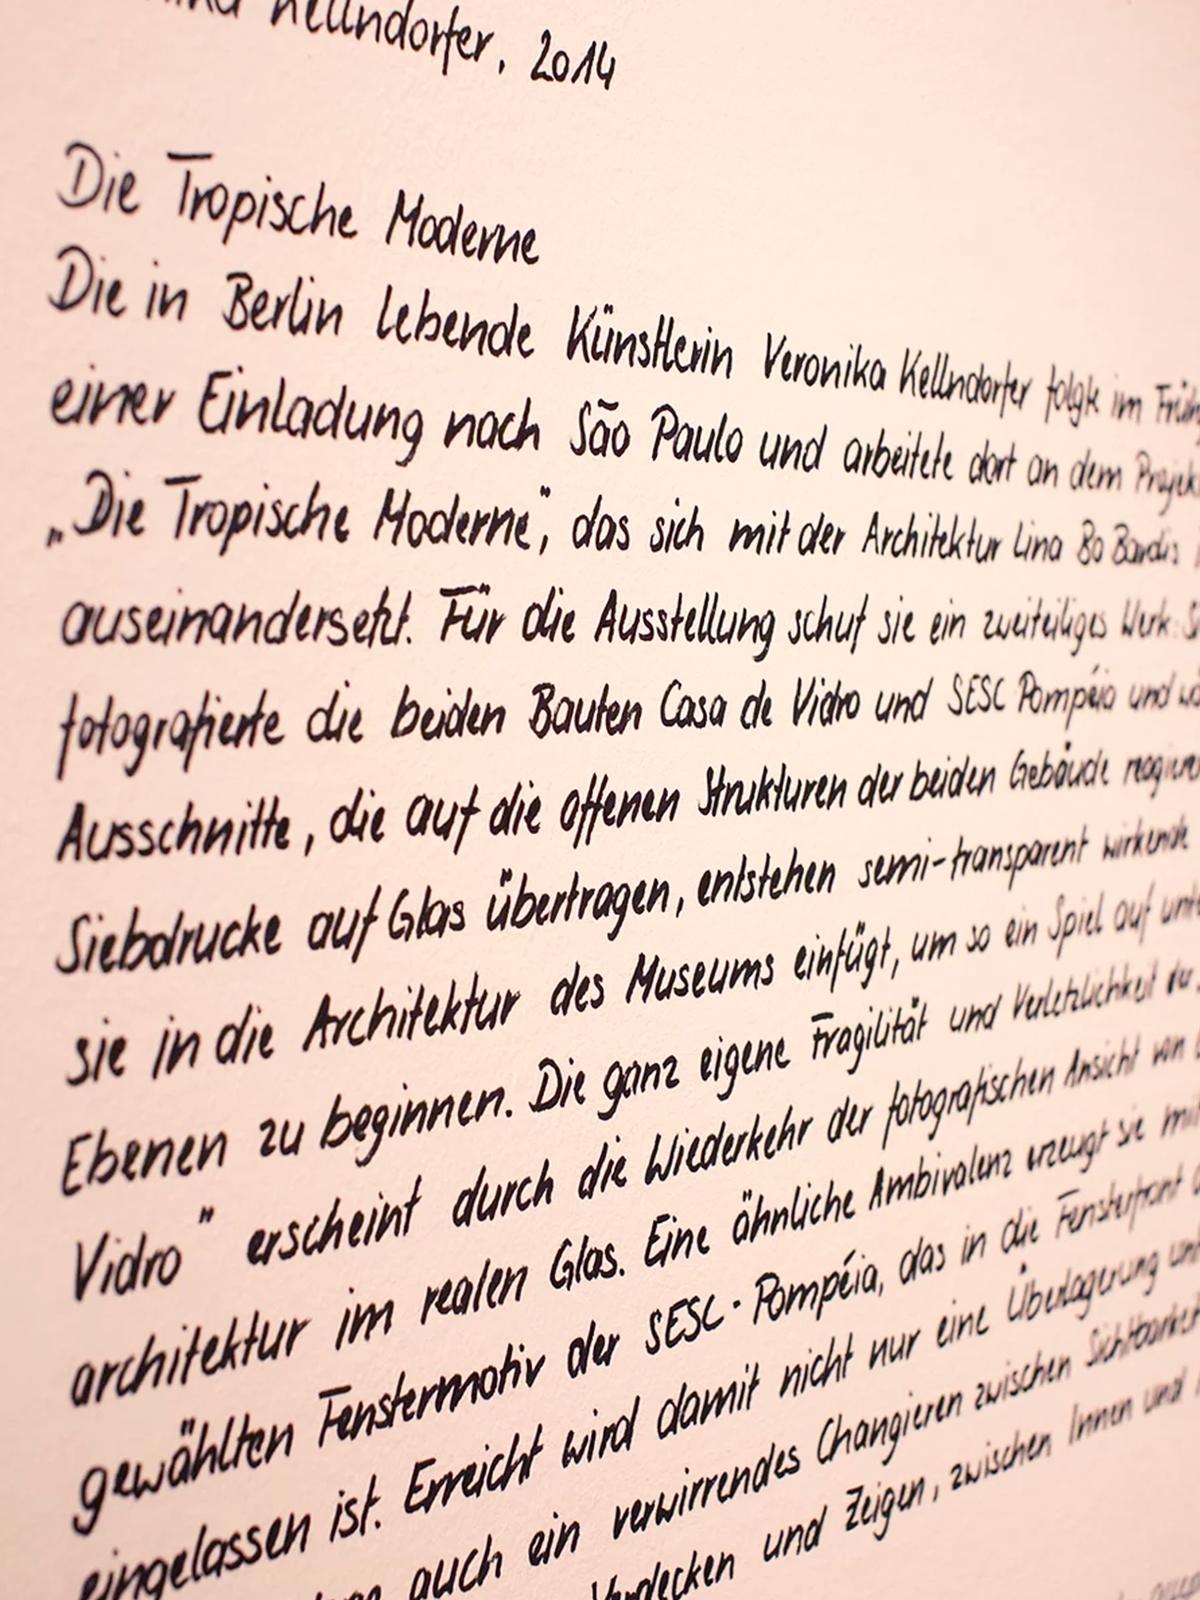 Kellndorfer, 2014
Die Tropische Moderne
Die in Berlin lebende Künstlerin Veronika Kellndorfer folgte im
einer Einladung nach São Paulo und arbeitete dort an dem Projekt
„Die Tropische Moderne", das sich mit der Architektur Lina Bo Bardis
auseinandersetzt. Für die Ausstellung schuf sie ein zweiteiliges Werk:
fotografierte die beiden Bauten Casa de Vidro und SESC Pompéia und
Ausschnitte, die auf die offenen Strukturen der beiden Gebäude
Siebdrucke auf Glas übertragen, entstehen semi-transparent wirkende
sie in die Architektur des Museums einfügt, um so ein Spiel auf
Ebenen zu beginnen. Die ganz eigene Fragilität und Verletzlichkeit der
Vidro" erscheint durch die Wiederkehr der fotografischen Ansicht von
architektur im realen Glas. Eine ähnliche Ambivalenz erzeugt sie mit
gewählten Fenstermotiv der SESC-Pompéia, das in die Fensterfront
eingelassen ist. Erreicht wird damit nicht nur eine Überlagerung
auch ein verwirrendes Changieren zwischen Sichtbarkeit
Verdecken und Zeigen, zwischen Innen und